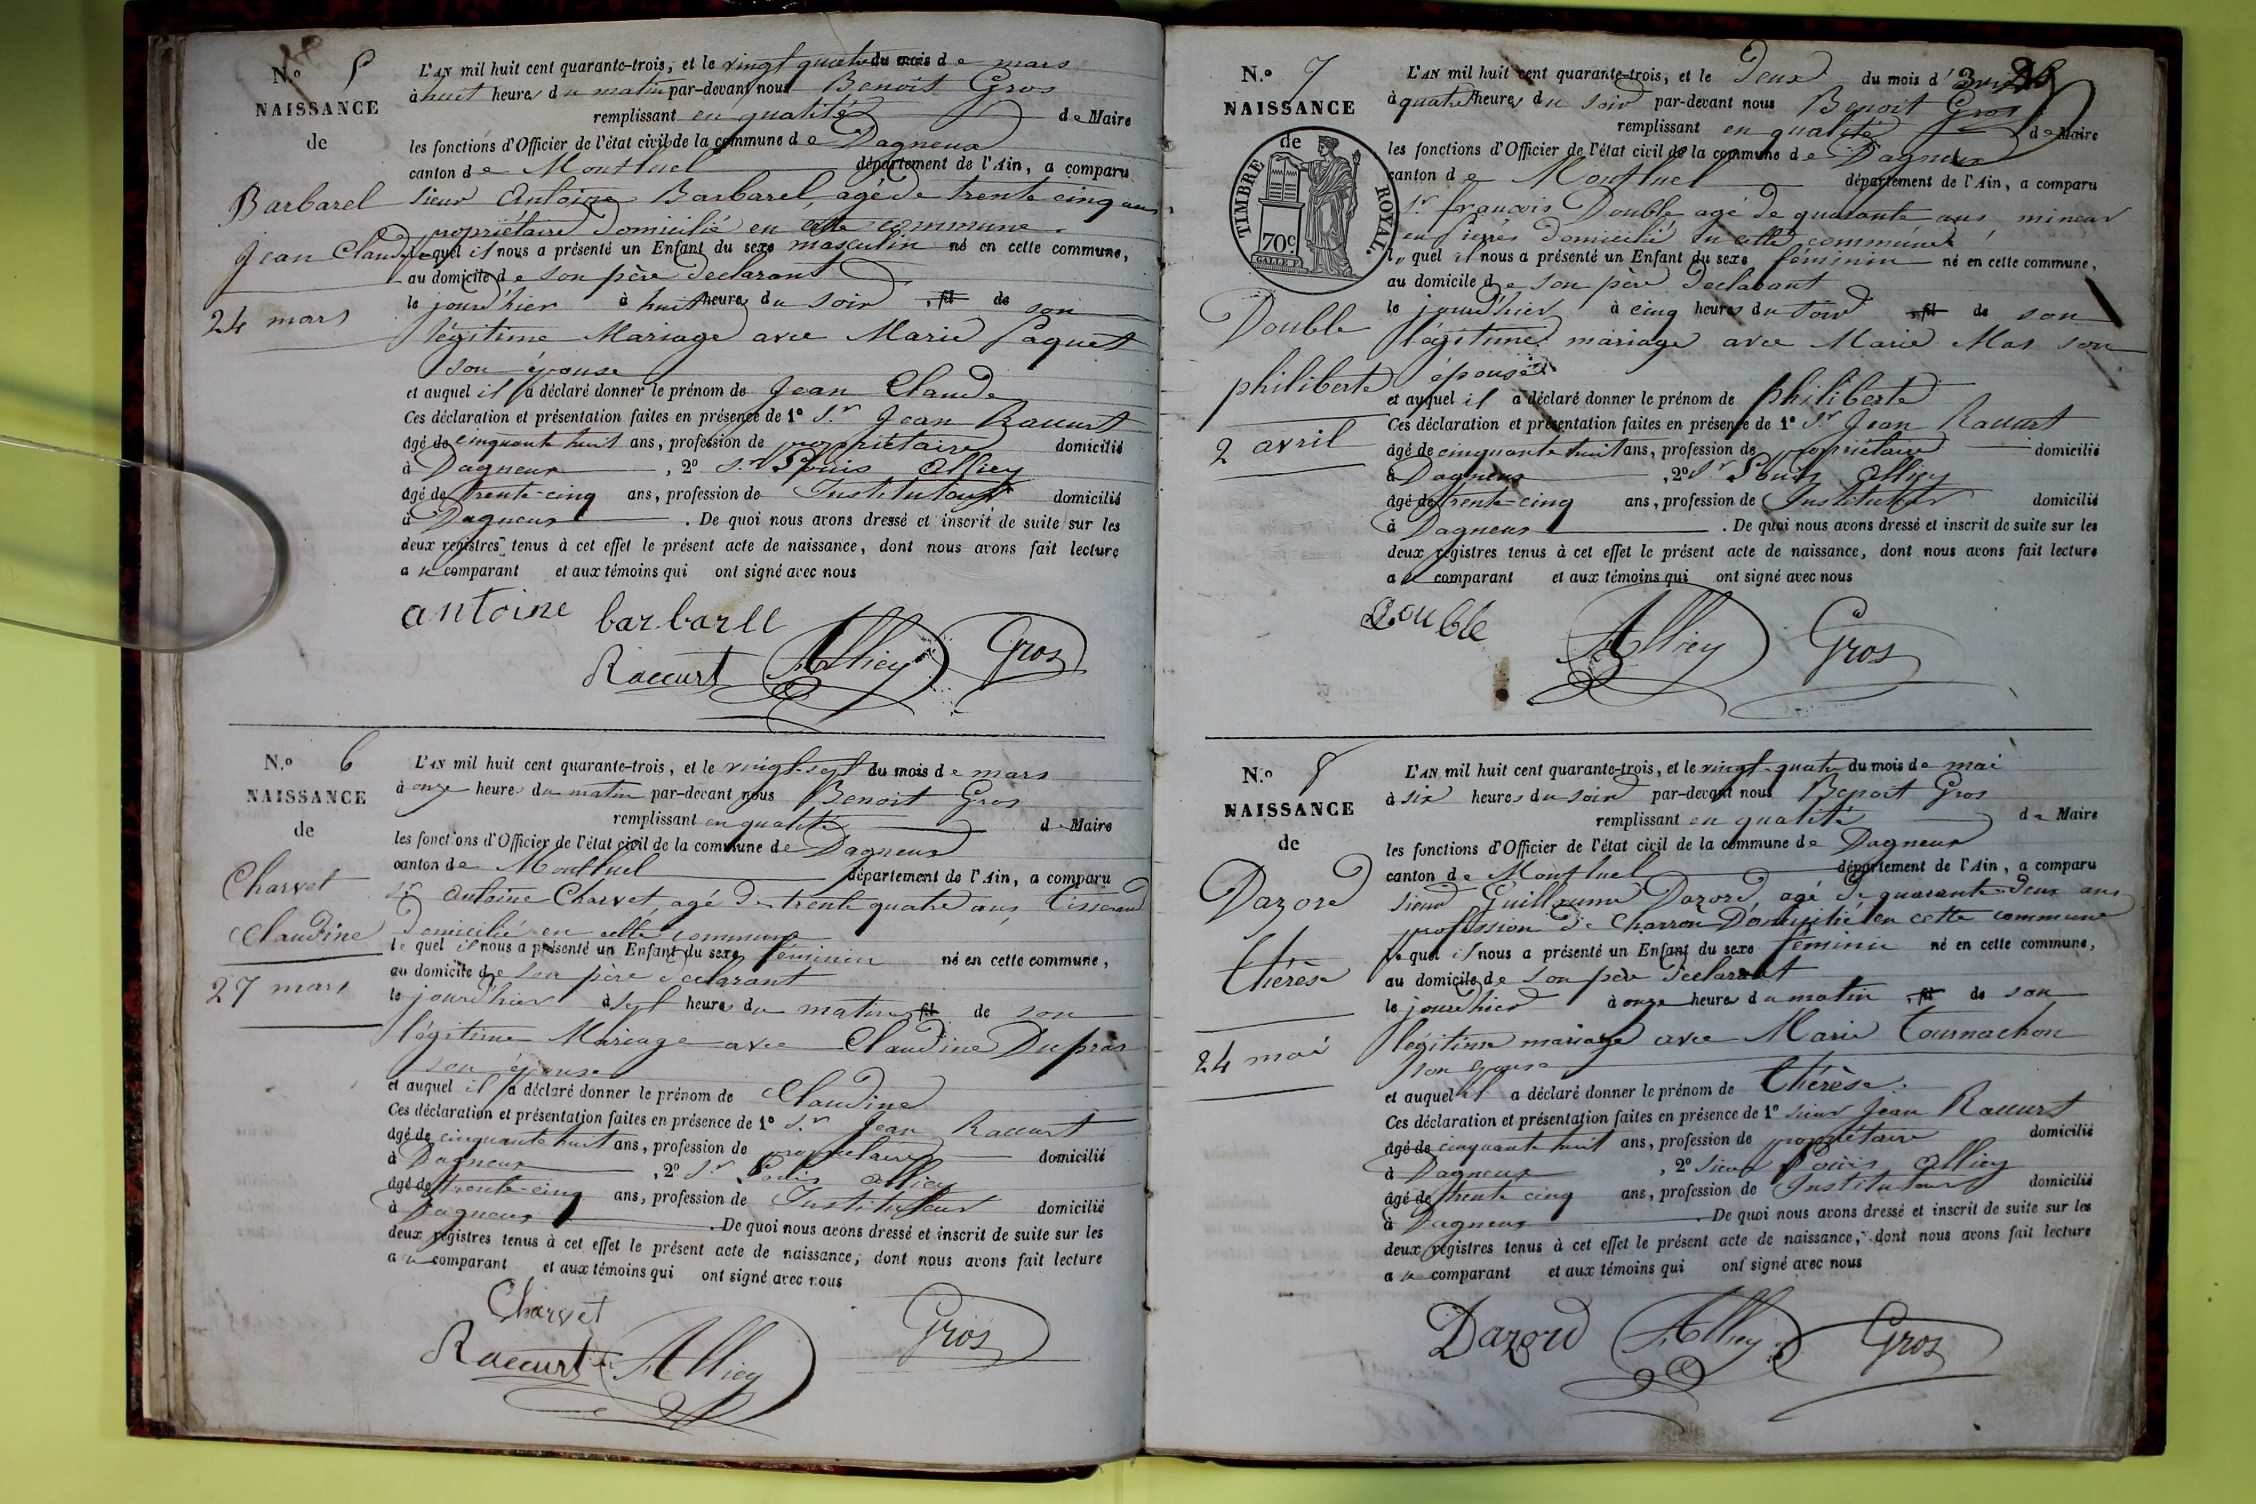 N.o 5
NAISSANCE
de
Barbarel
Jean Claude
24 mars
L'AN mil huit cent quarante-trois, et le vingt quatre du mois de mars
à huit heures du matin par-devant nous Benoit Gros
remplissant en qualité de Maire
les fonctions d'Officier de l'état civil de la commune de Dagneux
canton de Montluel département de l'Ain, a comparu
sieur Antoine Barbarel, agé de trente cinq ans
propriétaire domicilié en cette commune.
lequel il nous a présenté un Enfant du sexe masculin né en cette commune,
au domicile de son père déclarant
le jourd'hier à huit heures du soir, fil de son
légitime Mariage avec Marie Paquet
son épouse
et auquel il a déclaré donner le prénom de Jean Claude
Ces déclaration et présentation faites en présence de 1o Sr Jean Raccurt
âgé de cinquante huit ans, profession de propriétaire domicilié
à Dagneux, 2o Sr Louis Alliey
âgé de trente-cinq ans, profession de Instituteur domicilié
à Dagneux. De quoi nous avons dressé et inscrit de suite sur les
deux registres tenus à cet effet le présent acte de naissance, dont nous avons fait lecture
au comparant et aux témoins qui ont signé avec nous
antoine barbarll
Raccurt Alliey Gros
N.o 6
NAISSANCE
de
Charvet
Claudine
27 mars
L'AN mil huit cent quarante-trois, et le vingt-sept du mois de mars
à onze heures du matin par-devant nous Benoit Gros
remplissant en qualité de Maire
les fonctions d'Officier de l'état civil de la commune de Dagneux
canton de Montluel département de l'Ain, a comparu
Sr Antoine Charvet agé de trente quatre ans tisserand
domicilié en cette commune
lequel il nous a présenté un Enfant du sexe féminin né en cette commune,
au domicile de son père déclarant
le jourd'hier à sept heures du matin, fil de son
légitime Mariage avec Claudine Dupras
son épouse
et auquel il a déclaré donner le prénom de Claudine
Ces déclaration et présentation faites en présence de 1o Sr Jean Raccurt
âgé de cinquante huit ans, profession de propriétaire domicilié
à Dagneux, 2o Sr Louis Alliey
âgé de trente-cinq ans, profession de Instituteur domicilié
à Dagneux. De quoi nous avons dressé et inscrit de suite sur les
deux registres tenus à cet effet le présent acte de naissance, dont nous avons fait lecture
au comparant et aux témoins qui ont signé avec nous
Charvet
Raccurt Alliey Gros
N.o 7
NAISSANCE
de
TIMBRE ROYAL.
70c
GALLE F.
Double
philiberte
2 avril
L'AN mil huit cent quarante-trois, et le Deux du mois d'avril
à quatre heures du soir par-devant nous Benoit Gros
remplissant en qualité de Maire
les fonctions d'Officier de l'état civil de la commune de Dagneux
canton de Montluel département de l'Ain, a comparu
Sr françois Double agé de quarante ans mineur
en pierres domicilié en cette commune
lequel il nous a présenté un Enfant du sexe féminin né en cette commune,
au domicile de son père déclarant
le jourd'hier à cinq heures du soir, fil de son
légitime mariage avec Marie Mas son
épouse
et auquel il a déclaré donner le prénom de philiberte
Ces déclaration et présentation faites en présence de 1o Sr Jean Raccurt
âgé de cinquante huit ans, profession de propriétaire domicilié
à Dagneux, 2o Sr Louis Alliey
âgé de trente-cinq ans, profession de Instituteur domicilié
à Dagneux. De quoi nous avons dressé et inscrit de suite sur les
deux registres tenus à cet effet le présent acte de naissance, dont nous avons fait lecture
au comparant et aux témoins qui ont signé avec nous
Double Alliey Gros
N.o 8
NAISSANCE
de
Dazord
thérèse
24 mai
L'AN mil huit cent quarante-trois, et le vingt-quatre du mois de mai
à six heures du soir par-devant nous Benoit Gros
remplissant en qualité de Maire
les fonctions d'Officier de l'état civil de la commune de Dagneux
canton de Montluel département de l'Ain, a comparu
sieur Guillaume Dazord, agé de quarante-deux ans
profession de Charron Domicilié en cette commune
lequel il nous a présenté un Enfant du sexe féminin né en cette commune,
au domicile de son père déclarant
le jourd'hier à onze heures du matin, fil de son
légitime mariage avec Marie tournachon
son épouse
et auquel il a déclaré donner le prénom de thérèse.
Ces déclaration et présentation faites en présence de 1o sieur Jean Raccurt
âgé de cinquante huit ans, profession de propriétaire domicilié
à Dagneux, 2o sieur Louis Alliey
âgé de trente cinq ans, profession de Instituteur domicilié
à Dagneux. De quoi nous avons dressé et inscrit de suite sur les
deux registres tenus à cet effet le présent acte de naissance, dont nous avons fait lecture
au comparant et aux témoins qui ont signé avec nous
Dazord Alliey Gros